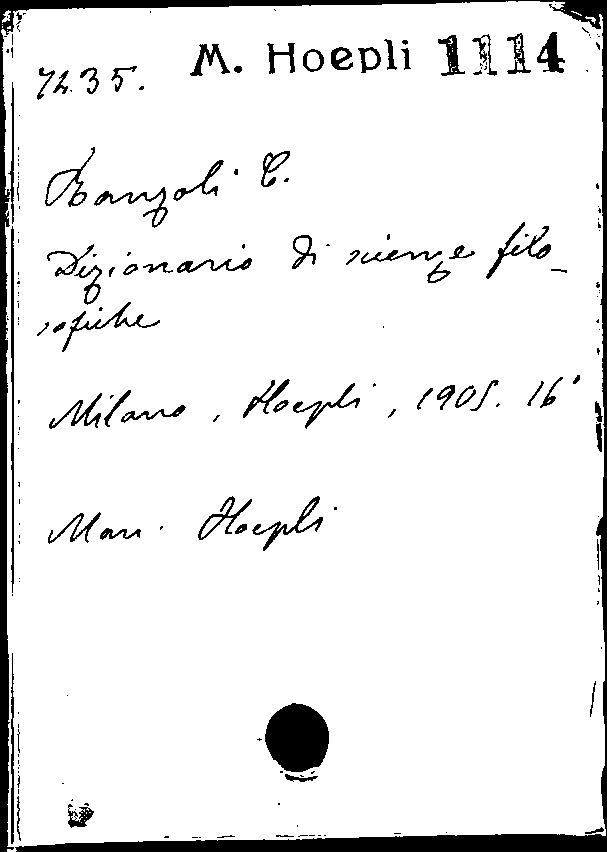 7235. M. Hoepli 1114
Ranzoli C.
Dizionario di scienze filo-
sofiche
Milano, Hoepli, 1905. 16°
Man. Hoepli